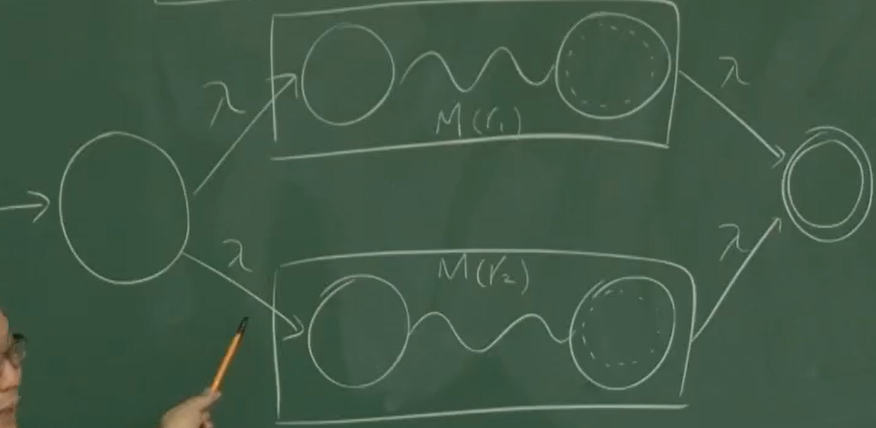 λ
λ
M(r₁)
λ
M(r₂)
λ